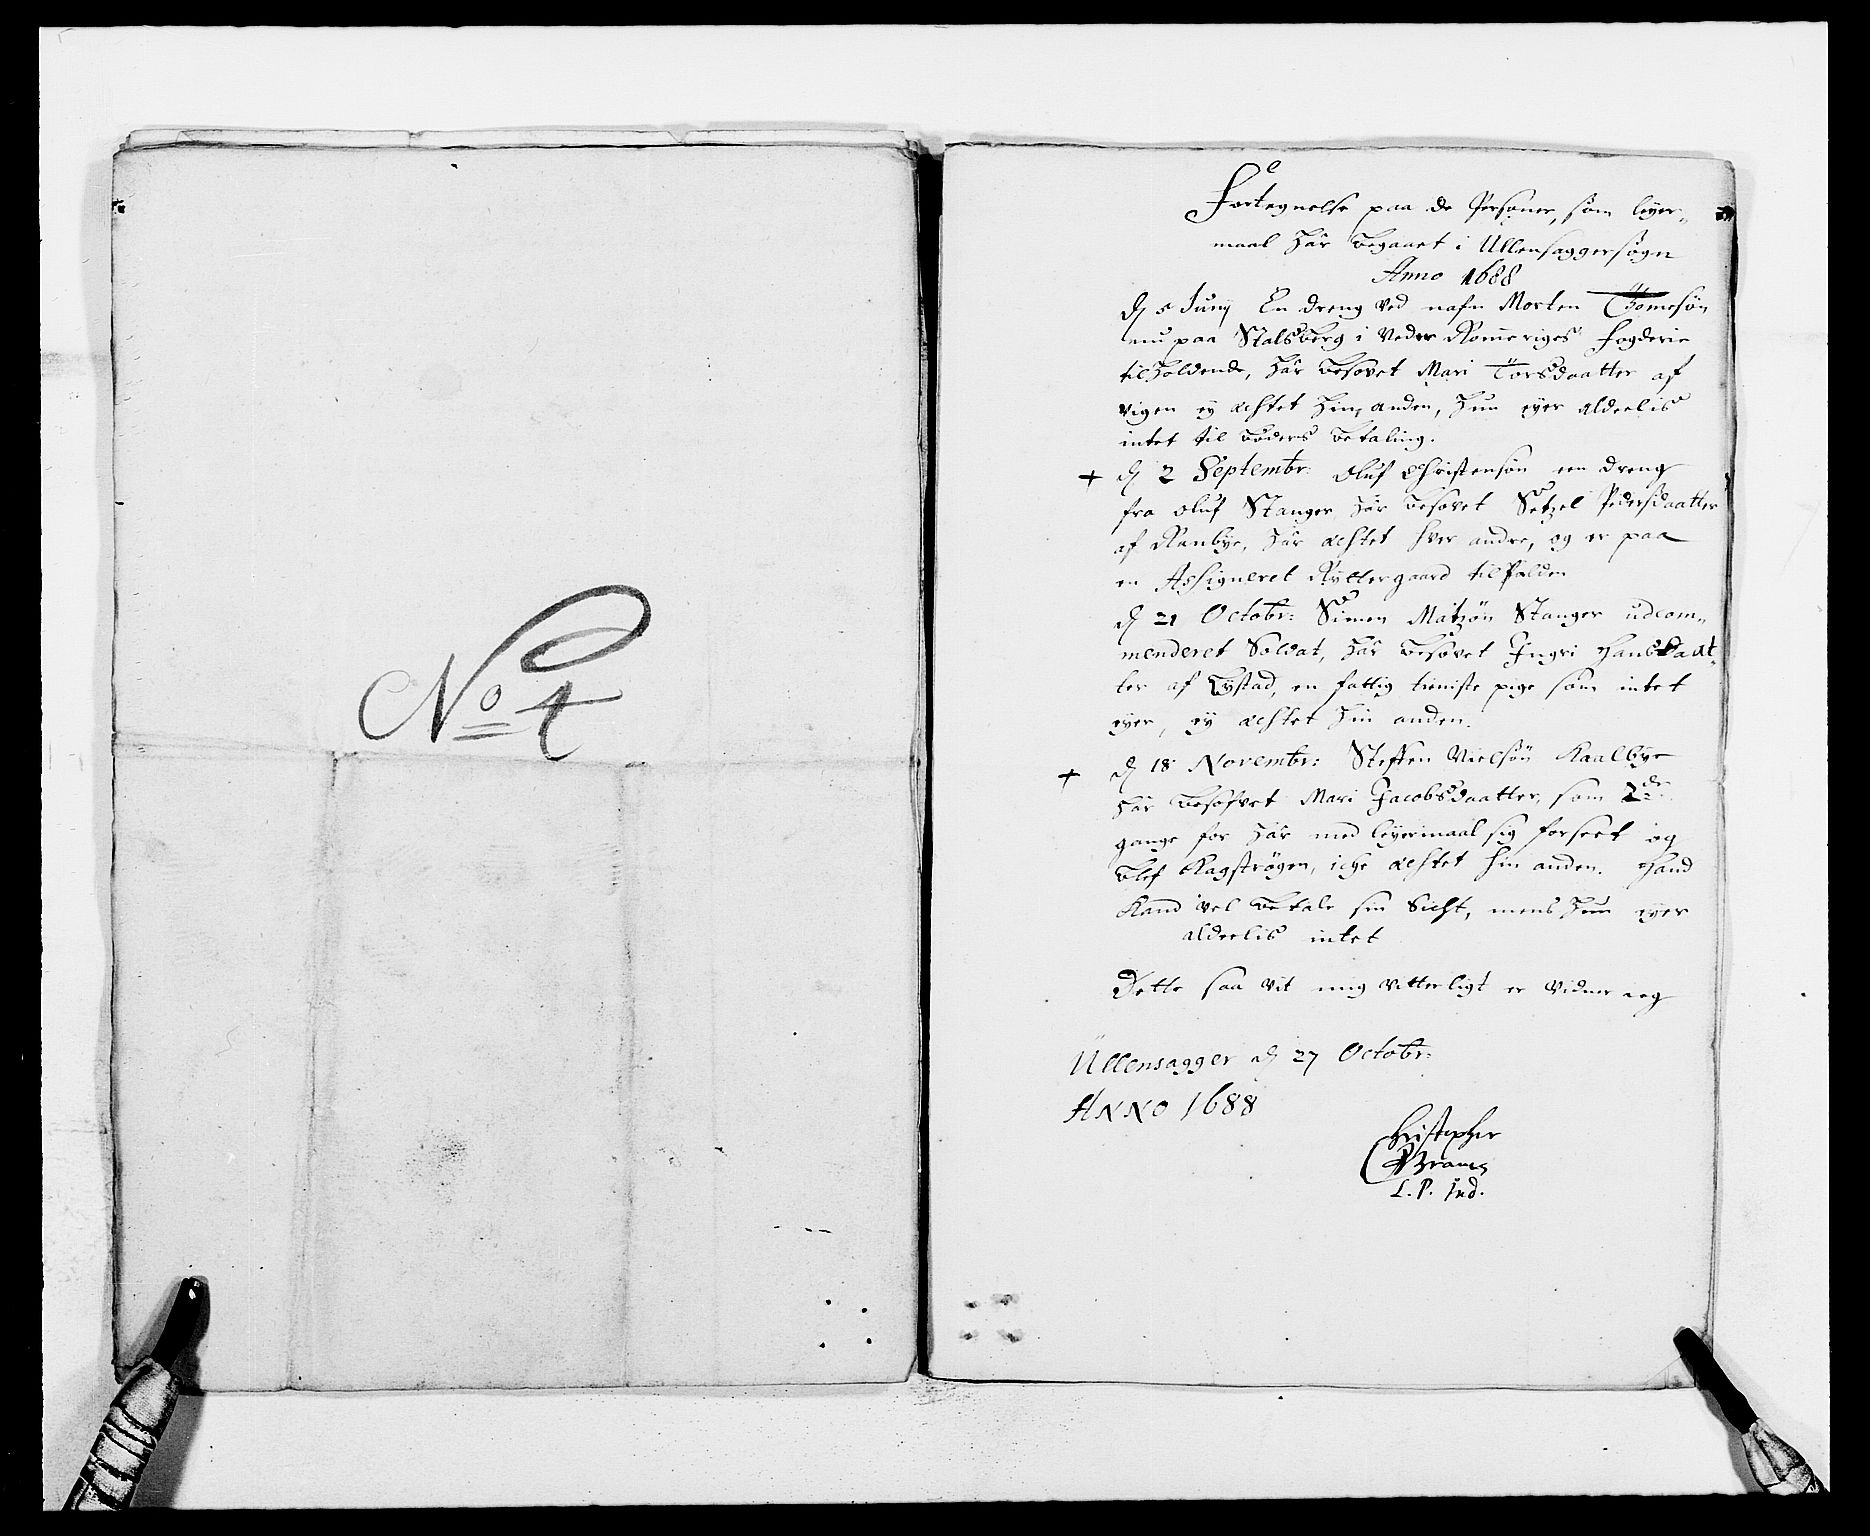 No 4
Fortegnelse paa de Persohner, som leyer-
maal har begaaet i Ullensaggersogn
Anno 1688
d 5 Junij En dreng ved nafn Morten Tomesøn
nu paa Stalsberg i Neder Romeriges fogderie
tilholdende, har besovet Mari Torsdaatter af
vigen ey ächtet hin, anden, hun eyer aldeelis
intet til bøders betaling.
+ d 2 Septembr: Oluf Christensøn een dreng
fra Oluf Stanger har besovet Setzel Pedersdaatter
af Ranbye, har ächtet hver andre, og er paa
en Assigneret Ryttergaard tilholden
d 21 Octobr: Simen Matzøn Stanger udcom-
menderet Soldat, har besovet Ingri Hansdaat-
ter af Tystad, en fattig tieniste pige som intet
eyer, ey ächtet hin anden.
+ d 18 Novembr: Steffen Nielsøn Kaalbye
har besofvet Mari Jacobsdaatter, som 2de
gange før har med leyermaal sig forseet og
blef Kagstrøgen, iche ächtet hin anden. Hand
Kand vel betale sin Sicht, mens hun eyer
aldeelis intet
Dette saa vit mig vitterligt er vidner ieg
Ullensagger d 27 Octobr:
ANNO 1688
Christopher
Brams
L. P. Ind.